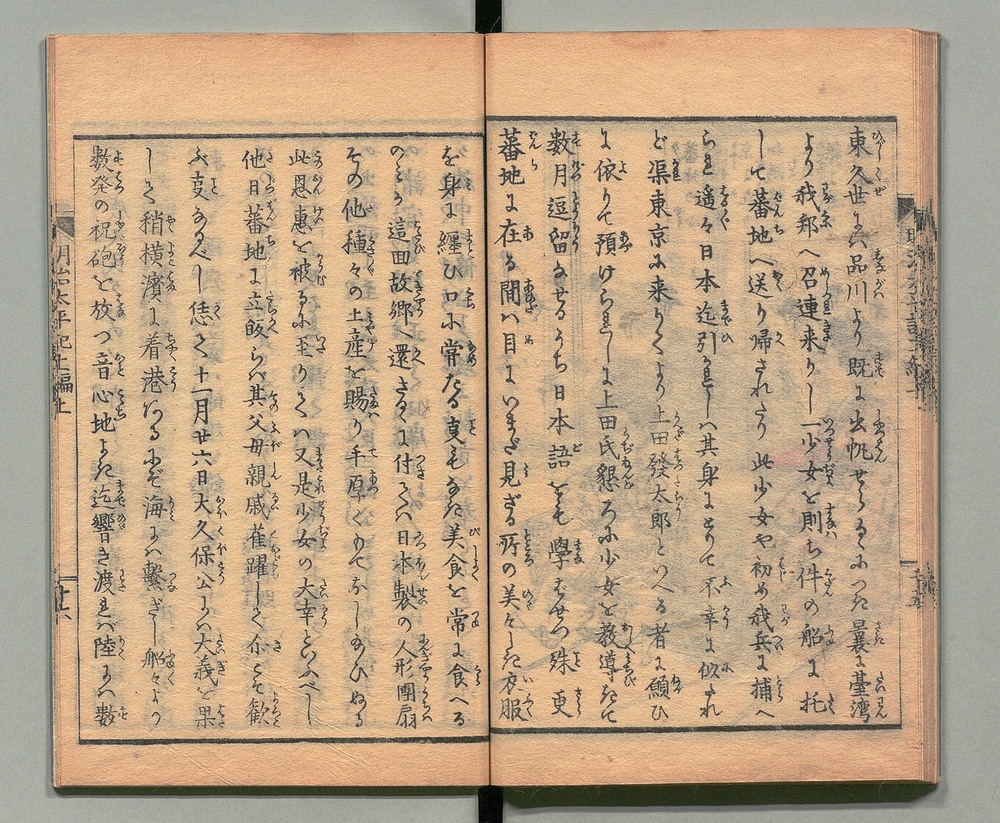 東久世に八品川より既に出帆せらるゝにつき曩に臺湾
より我邦へ召連来りし一少女を則ち件の船に托
して蕃地へ送り帰されたり此少女や初め我兵に捕へ
られ遥々日本迄引かれしハ其身にとりて不幸に似たれ
ど渠東京に来りてより上田發太郎といへる者に願ひ
に依りて預けられしに上田氏懇ろに少女を教導きて
數月逗留なせるうち日本語をも學をせつ殊更
蕃地に在る間ハ目にいまだ見ざる所の美々しき衣服
を身に纏ひ口に常なる叓もなき美食を常に食へる
のミか這回故郷へ還さるゝに付てハ日本製の人形團扇
その他種々の土産を賜り手厚くもてなしめひぬる
此恩惠を被るに至りてハ又是少女の大幸といふべし
他日蕃地に立皈らバ其父母親戚雀躍して尓こそ歓
ぶ叓なるべし恁て十一月廿六日大久保公にハ大義を果
して稍横濱に着港ありるにぞ海にハ繋ぎし船々より
數発の祝砲を放つ音心地よき迄響き渡れバ陸にハ數
明治太平記七編上